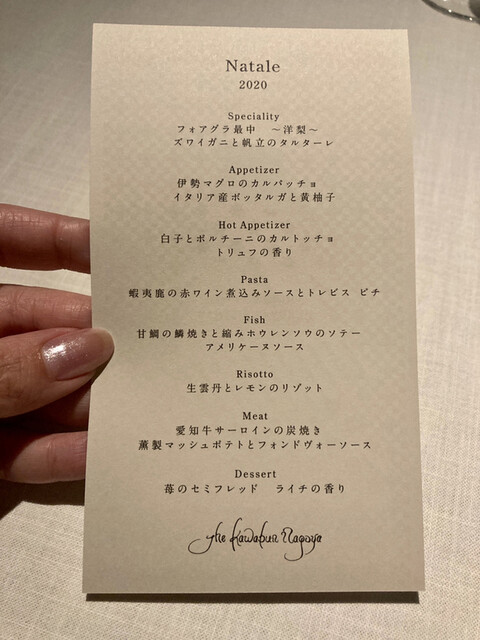 Natale
2020
Speciality
フォアグラ最中　～洋梨～
ズワイガニと帆立のタルターレ
Appetizer
伊勢マグロのカルパッチョ
イタリア産ボッタルガと黄柚子
Hot Appetizer
白子とポルチーニのカルトッチョ
トリュフの香り
Pasta
蝦夷鹿の赤ワイン煮込みソースとトレビス ピチ
Fish
甘鯛の鱗焼きと縮みホウレンソウのソテー
アメリケーヌソース
Risotto
生雲丹とレモンのリゾット
Meat
愛知牛サーロインの炭焼き
薫製マッシュポテトとフォンドヴォーソース
Dessert
苺のセミフレッド　ライチの香り
The Kawabun Nagoya